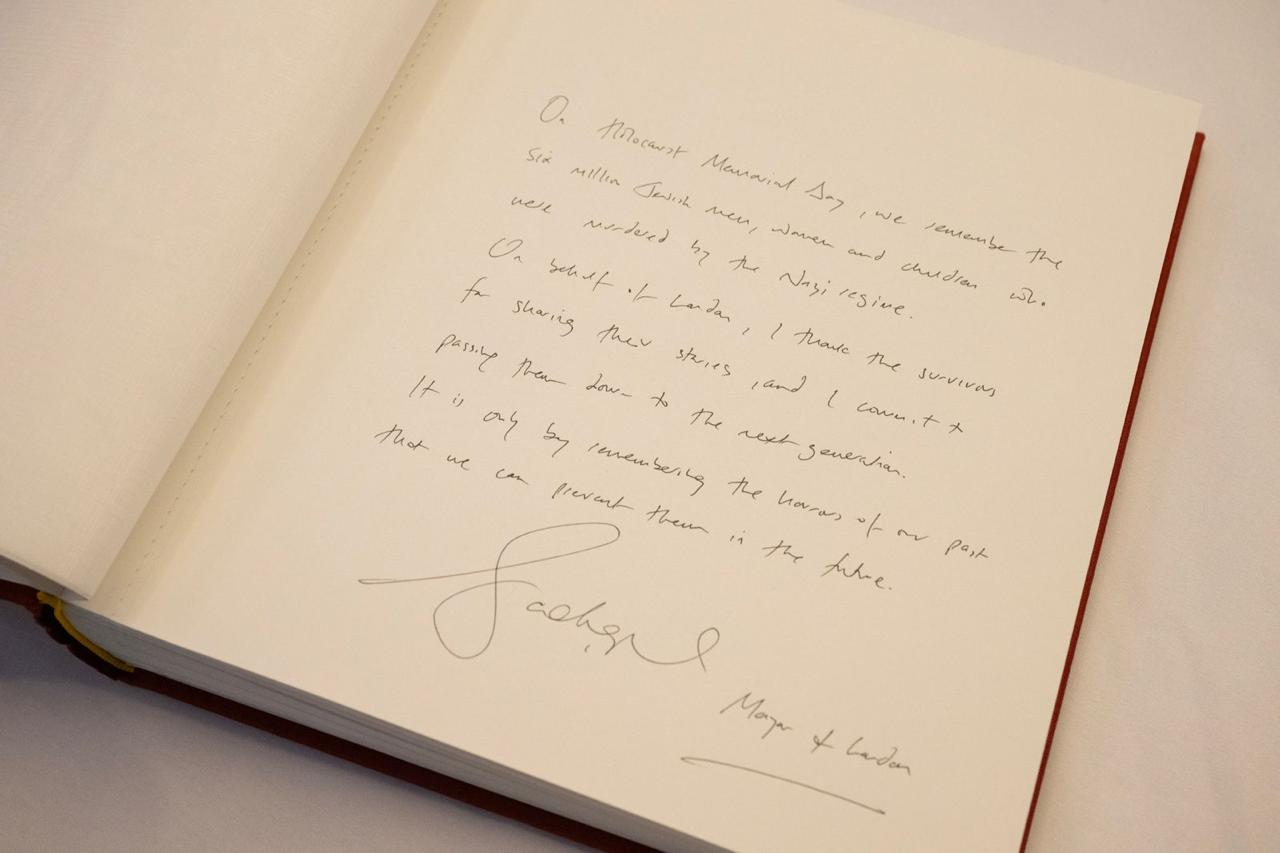 On Holocaust Memorial Day, we remember the
six million Jewish men, women and children who
were murdered by the Nazi regime.
On behalf of London, I thank the survivors
for sharing their stories, and I commit to
passing them down to the next generation.
It is only by remembering the horrors of our past
that we can prevent them in the future.
Mayor of London